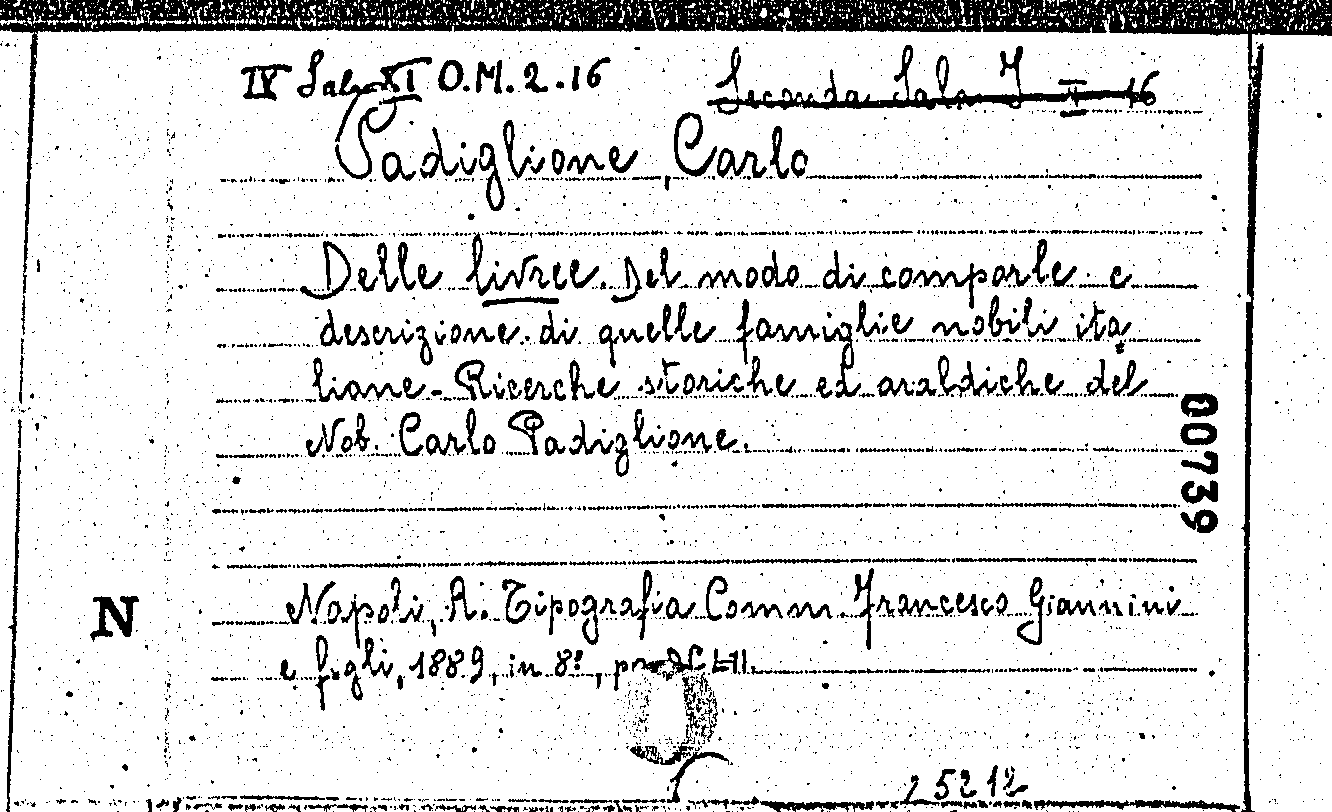 IV Sala XI O.M. 2. 16
Seconda Sala I II 16
Padiglione, Carlo
Delle livree. Del modo di comporle e
descrizione di quelle famiglie nobili ita
liane - Ricerche storiche ed araldiche del
Nob. Carlo Padiglione.
00739
N
Napoli, R. Tipografia Comm. Francesco Giannini
e figli, 1889, in 8º,
25212